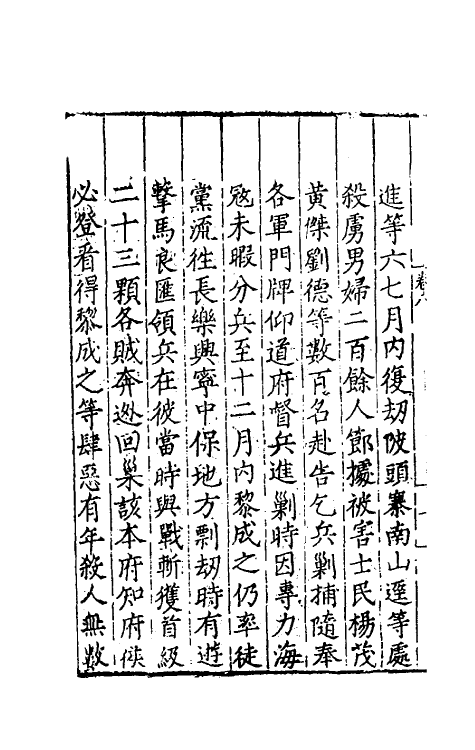 進等六七月内復刼陂頭寨南山逕等處
殺虜男婦二百餘人節據被害士民楊茂
黄傑劉德等數百名赴告乞兵剿捕隨奉
各軍門牌仰道府督兵進剿時因專力海
寇未暇分兵至十二月内黎成之仍率徒
黨流徃長樂興寧中保地方剽刼時有遊
擊馬良匯領兵在彼當時與戰斬獲首級
二十三顆各賊奔迯回巢該本府知府侯
必登看得黎成之等肆惡有年殺人無數
卷八